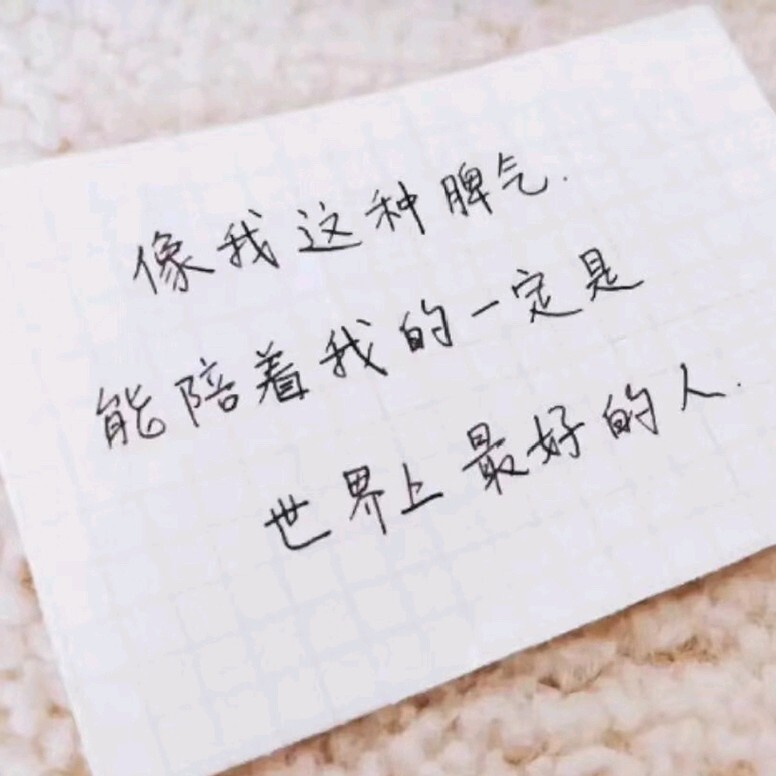 像我这种脾气.
能陪着我的一定是
世界上最好的人.